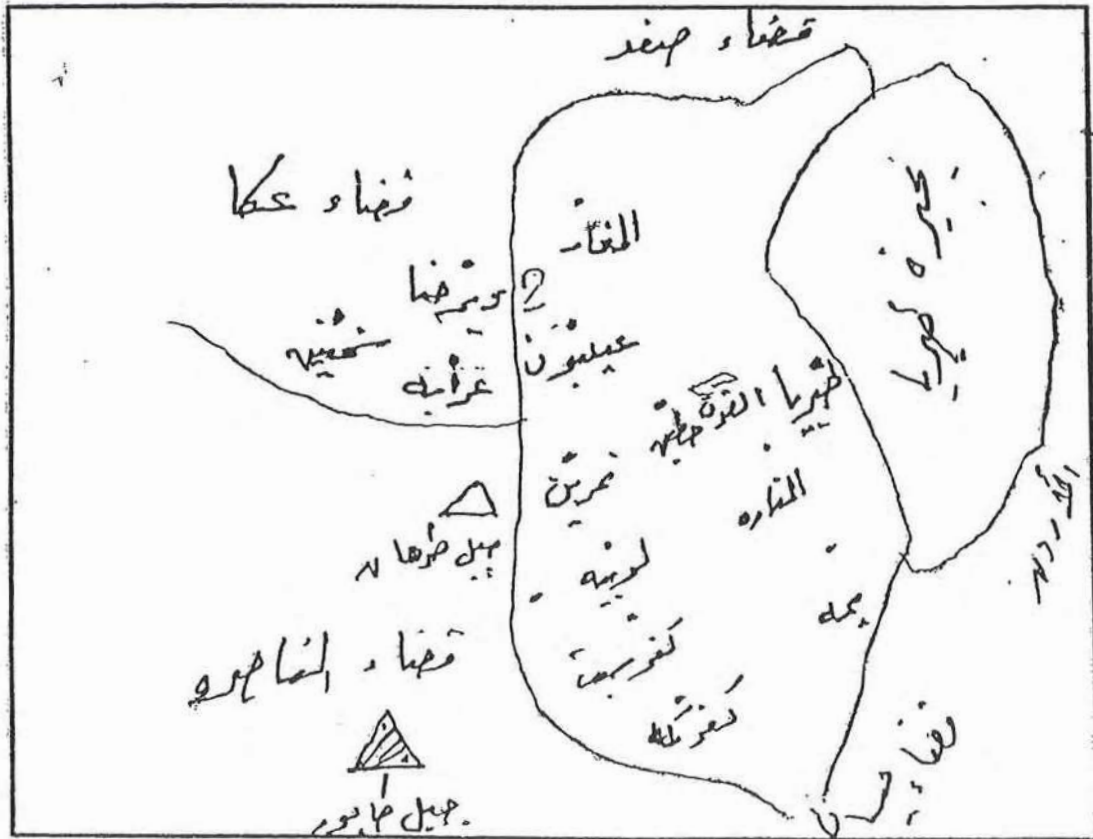 قضاء صفد
قضاء عكا
بحيرة طبريا
المغار
ديرحنا
سخنين
عرابة
عيلبون
طبريا
حطين
نمرين
المناره
جبل طرعان
لوبيه
يمه
قضاء الناصره
كفرسبت
كفركما
جبل طابور